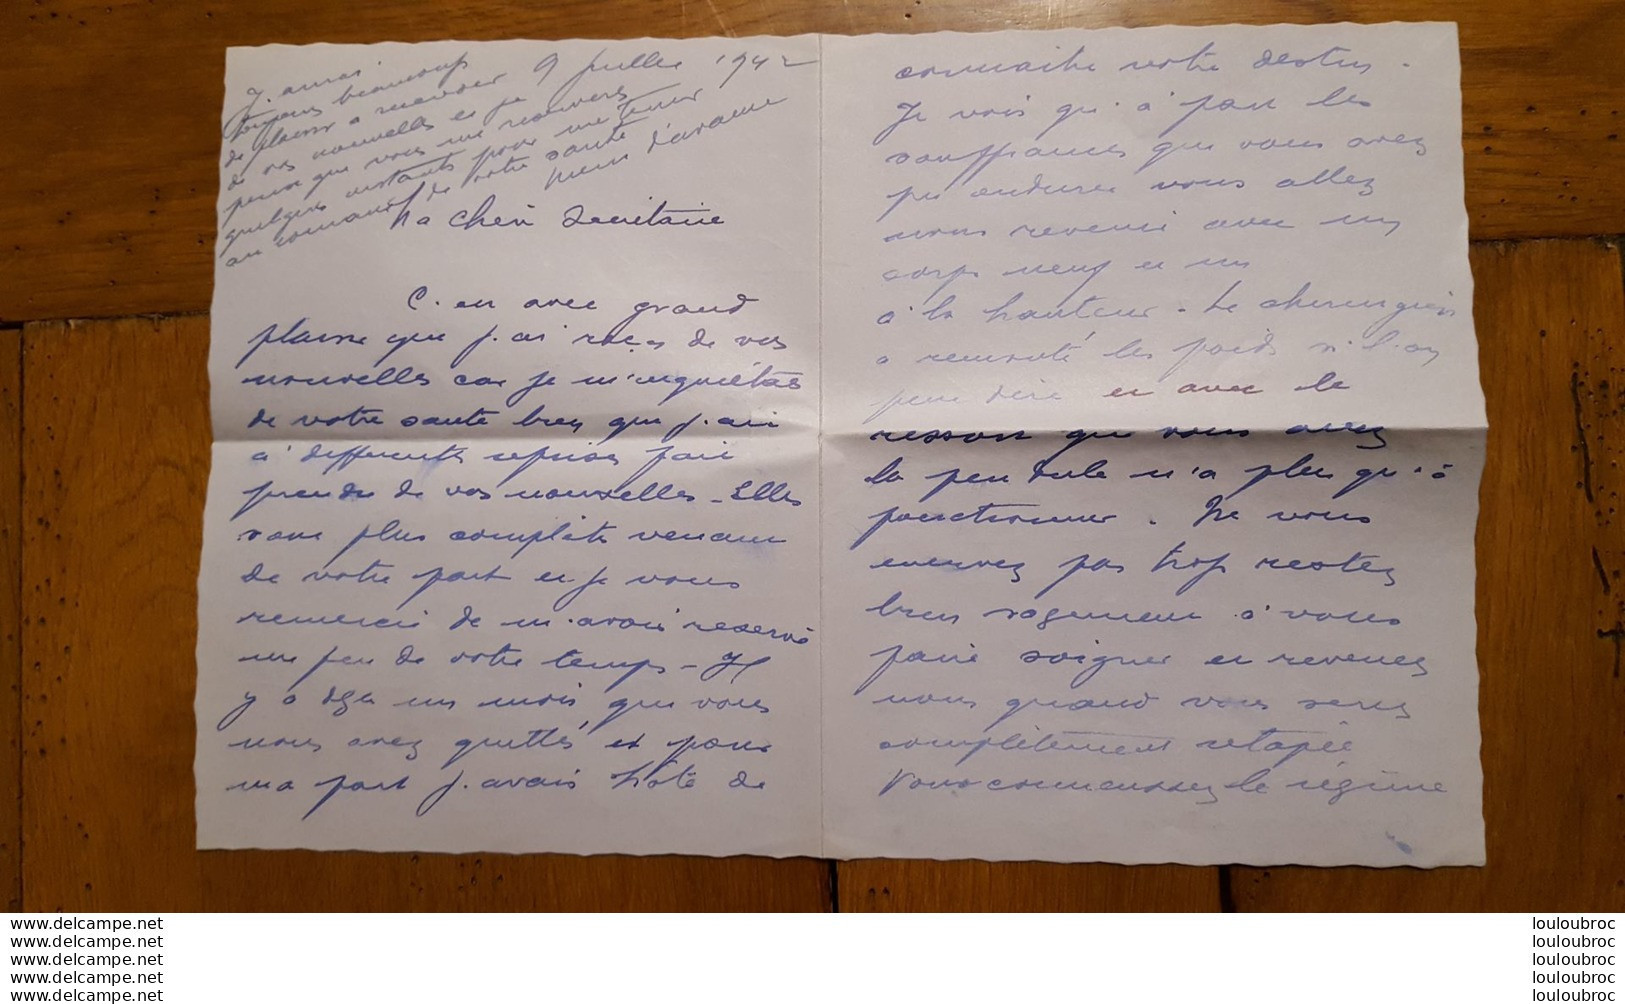 9 Juillet 1942
J'aurai
toujours beaucoup
de plaisir à recevoir
de vos nouvelles et je
pense que vous me reserverez
quelques instants pour me tenir
au courant de votre santé
merci d'avance
Ma Chère Secrétaire
C'est avec grand
plaisir que j'ai reçu de vos
nouvelles car je m'inquiétais
de votre santé bien que j'ai
à différentes reprises fait
prendre de vos nouvelles - Elles
sont plus complètes venant
de votre part et je vous
remercie de m'avoir reservé
un peu de votre temps - Il
y a deja un mois que vous
nous avez quittés et pour
ma part j'avais hâte de
connaitre votre destin.
Je vois qu'à part les
souffrances que vous avez
pu endurer vous allez
nous revenir avec un
corps neuf et un
à la hauteur. Le chirurgien
a remonté les poids si l'on
peut dire et avec le
ressort que vous avez
la pendule n'a plus qu'à
fonctionner. Ne vous
enervez pas trop restez
bien sagement à vous
faire soigner et revenez
nous quand vous serez
complètement retapée
Vous connaissez le régime
www.delcampe.net
www.delcampe.net
www.delcampe.net
www.delcampe.net
www.delcampe.net
louloubroc
louloubroc
louloubroc
louloubroc
louloubroc